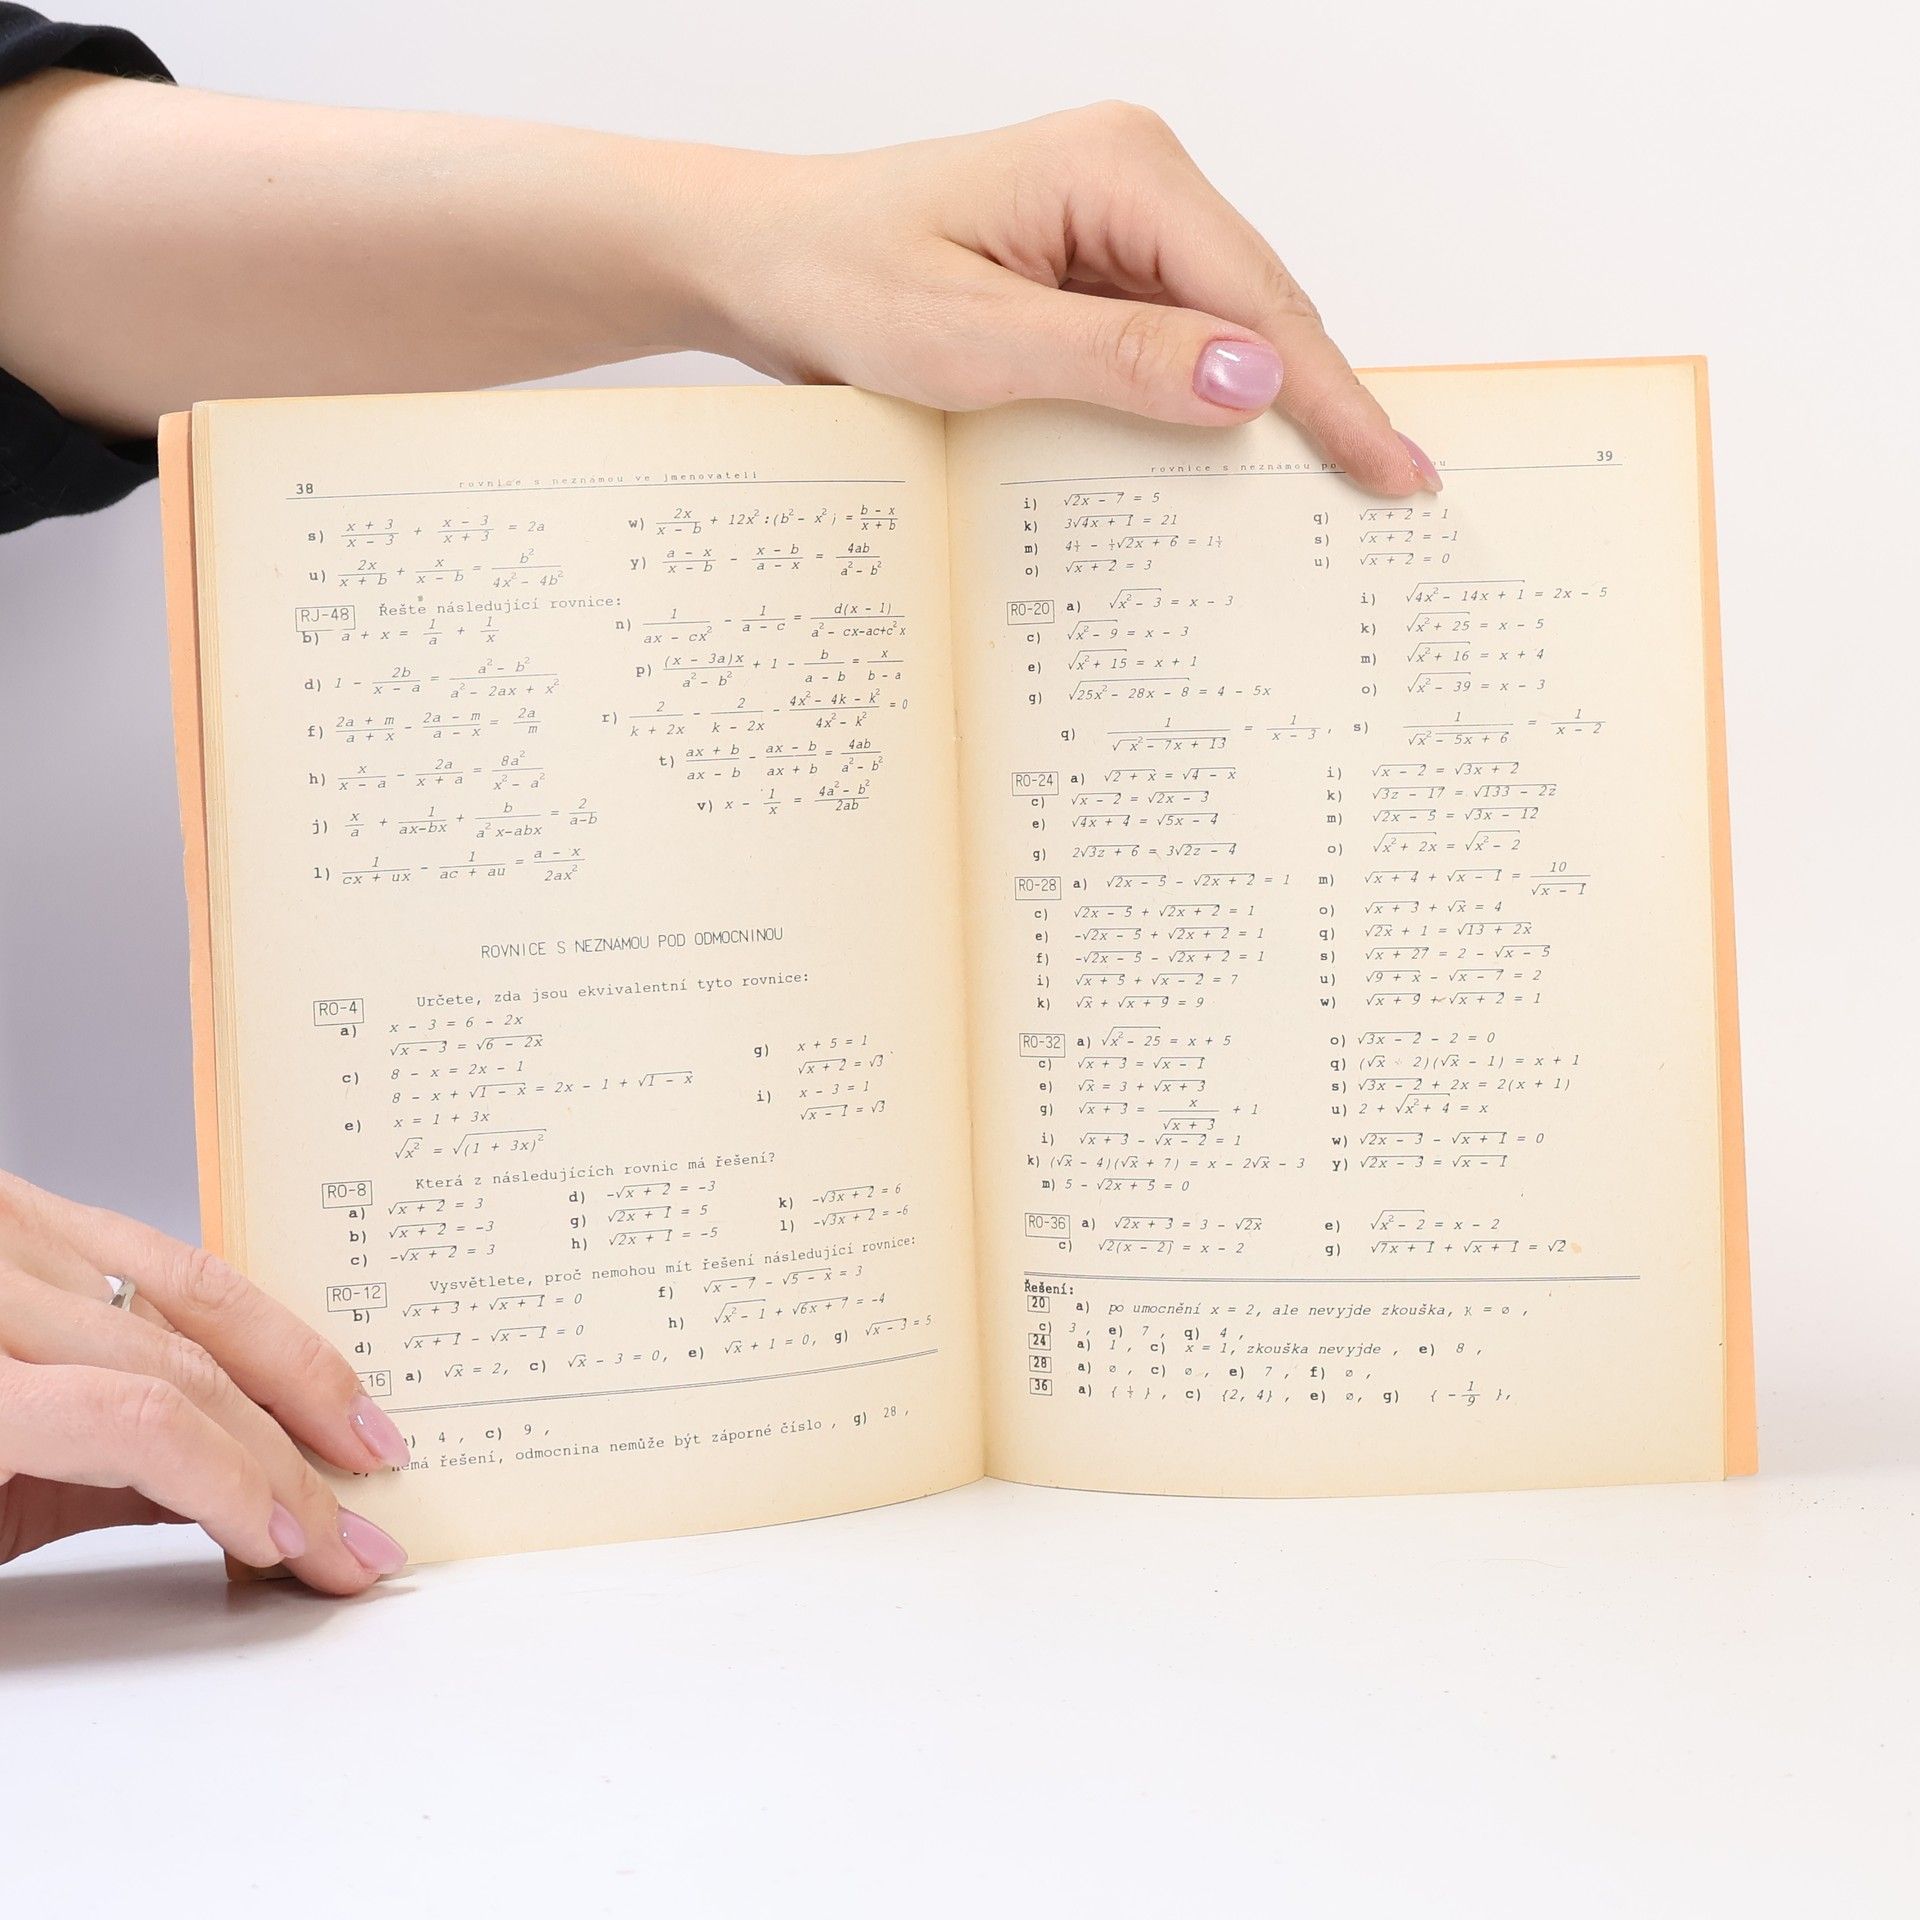 38 rovnice s neznámou ve jmenovateli
s) (x + 3)/(x - 3) + (x - 3)/(x + 3) = 2a
w) 2x/(x - b) + 12x² :(b² - x²) = (b - x)/(x + b)
u) 2x/(x + b) + x/(x - b) = b²/(4x² - 4b²)
y) (a - x)/(x - b) - (x - b)/(a - x) = 4ab/(a² - b²)
RJ-48 Řešte následující rovnice:
b) a + x = 1/a + 1/x
n) 1/(ax - cx²) - 1/(a - c) = d(x - 1)/(a² - cx-ac+c²x)
d) 1 - 2b/(x - a) = (a² - b²)/(a² - 2ax + x²)
p) (x - 3a)x/(a² - b²) + 1 - b/(a - b) = x/(b - a)
f) (2a + m)/(a + x) - (2a - m)/(a - x) = 2a/m
r) 2/(k + 2x) - 2/(k - 2x) - (4x² - 4k - k²)/(4x² - k²) = 0
h) x/(x - a) - 2a/(x + a) = 8a²/(x² - a²)
t) (ax + b)/(ax - b) - (ax - b)/(ax + b) = 4ab/(a² - b²)
j) x/a + 1/(ax-bx) + b/(a²x-abx) = 2/(a-b)
v) x - 1/x = (4a² - b²)/2ab
l) 1/(cx + ux) - 1/(ac + au) = (a - x)/2ax²
ROVNICE S NEZNÁMOU POD ODMOCNINOU
RO-4 Určete, zda jsou ekvivalentní tyto rovnice:
a) x - 3 = 6 - 2x
√(x - 3) = √(6 - 2x)
c) 8 - x = 2x - 1
8 - x + √(1 - x) = 2x - 1 + √(1 - x)
e) x = 1 + 3x
√(x²) = √((1 + 3x)²)
g) x + 5 = 1
√(x + 2) = √3
i) x - 3 = 1
√(x - 1) = √3
RO-8 Která z následujících rovnic má řešení?
a) √(x + 2) = 3
b) √(x + 2) = -3
c) -√(x + 2) = 3
d) -√(x + 2) = -3
g) √(2x + 1) = 5
h) √(2x + 1) = -5
k) -√(3x + 2) = 6
l) -√(3x + 2) = -6
RO-12 Vysvětlete, proč nemohou mít řešení následující rovnice:
b) √(x + 3) + √(x + 1) = 0
f) √(x - 7) - √(5 - x) = 3
d) √(x + 1) - √(x - 1) = 0
h) √(x² - 1) + √(6x + 7) = -4
-16 a) √x = 2, c) √x - 3 = 0, e) √x + 1 = 0, g) √(x - 3) = 5
4 , c) 9 ,
nemá řešení, odmocnina nemůže být záporné číslo , g) 28 ,
rovnice s neznámou 39
i) √(2x - 7) = 5
k) 3√(4x + 1) = 21
m) 4½ - ½√(2x + 6) = 1½
o) √(x + 2) = 3
q) √(x + 2) = 1
s) √(x + 2) = -1
u) √(x + 2) = 0
RO-20 a) √(x² - 3) = x - 3
c) √(x² - 9) = x - 3
e) √(x² + 15) = x + 1
g) √(25x² - 28x - 8) = 4 - 5x
i) √(4x² - 14x + 1) = 2x - 5
k) √(x² + 25) = x - 5
m) √(x² + 16) = x + 4
o) √(x² - 39) = x - 3
q) 1/√(x² - 7x + 13) = 1/(x - 3) , s) 1/√(x² - 5x + 6) = 1/(x - 2)
RO-24 a) √(2 + x) = √(4 - x)
c) √(x - 2) = √(2x - 3)
e) √(4x + 4) = √(5x - 4)
g) 2√(3z + 6) = 3√(2z - 4)
i) √(x - 2) = √(3x + 2)
k) √(3z - 17) = √(133 - 2z)
m) √(2x - 5) = √(3x - 12)
o) √(x² + 2x) = √(x² - 2)
RO-28 a) √(2x - 5) - √(2x + 2) = 1
c) √(2x - 5) + √(2x + 2) = 1
e) -√(2x - 5) + √(2x + 2) = 1
f) -√(2x - 5) - √(2x + 2) = 1
i) √(x + 5) + √(x - 2) = 7
k) √x + √(x + 9) = 9
m) √(x + 4) + √(x - 1) = 10/√(x - 1)
o) √(x + 3) + √x = 4
q) √(2x) + 1 = √(13 + 2x)
s) √(x + 27) = 2 - √(x - 5)
u) √(9 + x) - √(x - 7) = 2
w) √(x + 9) + √(x + 2) = 1
RO-32 a) √(x² - 25) = x + 5
c) √(x + 3) = √(x - 1)
e) √x = 3 + √(x + 3)
g) √(x + 3) = x/√(x + 3) + 1
i) √(x + 3) - √(x - 2) = 1
k) (√x - 4)(√x + 7) = x - 2√x - 3
m) 5 - √(2x + 5) = 0
o) √(3x - 2) - 2 = 0
q) (√x 2)(√x - 1) = x + 1
s) √(3x - 2) + 2x = 2(x + 1)
u) 2 + √(x² + 4) = x
w) √(2x - 3) - √(x + 1) = 0
y) √(2x - 3) = √(x - 1)
RO-36 a) √(2x + 3) = 3 - √(2x)
c) √(2(x - 2)) = x - 2
e) √(x² - 2) = x - 2
g) √(7x + 1) + √(x + 1) = √2
Řešení:
20 a) po umocnění x = 2, ale nevyjde zkouška, K = ∅ ,
c) 3 , e) 7 , q) 4 ,
24 a) 1 , c) x = 1, zkouška nevyjde , e) 8 ,
28 a) ∅ , c) ∅ , e) 7 , f) ∅ ,
36 a) { ½ } , c) {2, 4} , e) ∅, g) { - 1/9 },